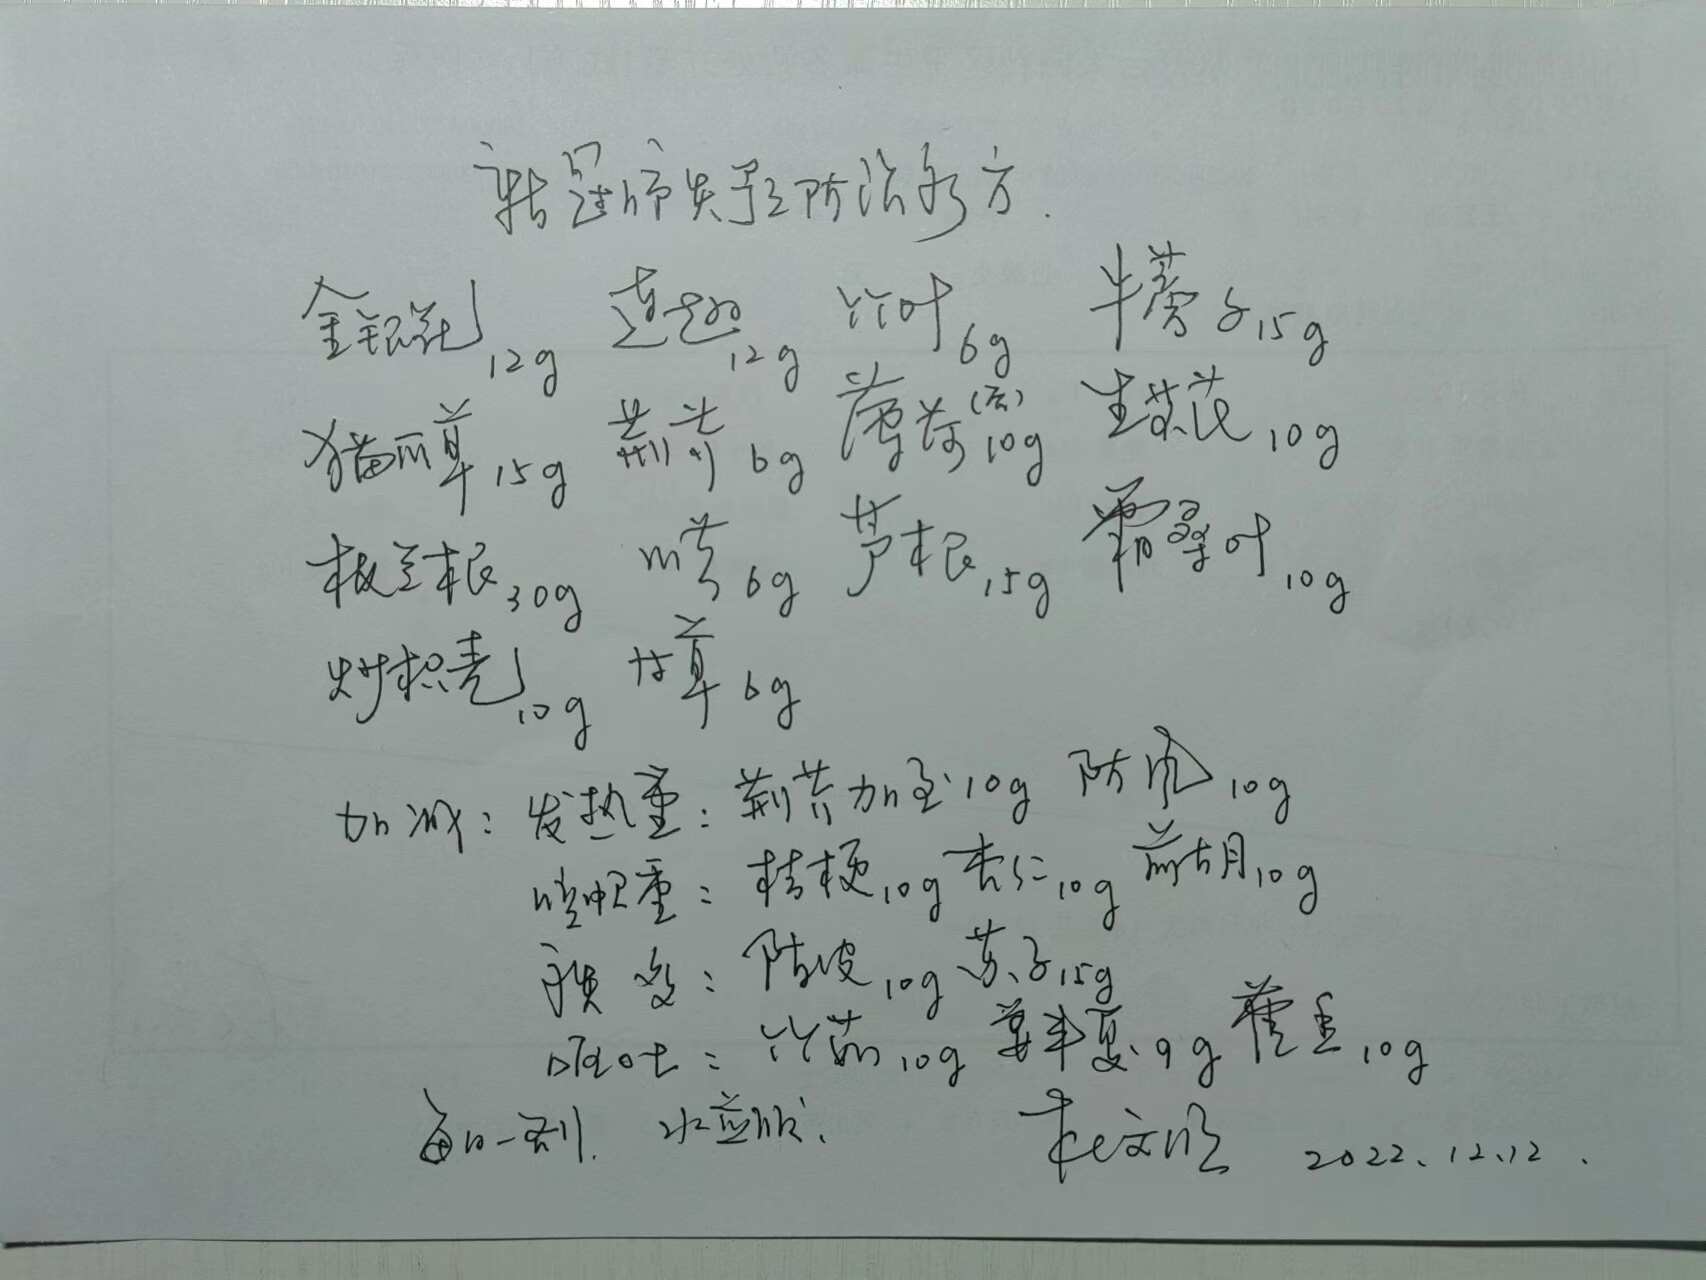 新冠 防治
金银花12g 连翘12g 竹叶6g 牛蒡子15g
猫爪草15g 荆芥6g 薄荷(后)10g 生黄芪10g
板兰根30g 川芎6g 芦根15g 霜桑叶10g
炒枳壳10g 甘草6g
加减：发热重：荆芥加至10g 防风10g
咳重：桔梗10g 杏仁10g 前胡10g
痰多：陈皮10g 苏子15g
呕吐：竹茹10g 姜半夏9g 藿 10g
每日一剂. 水煎服.
2022.12.12.